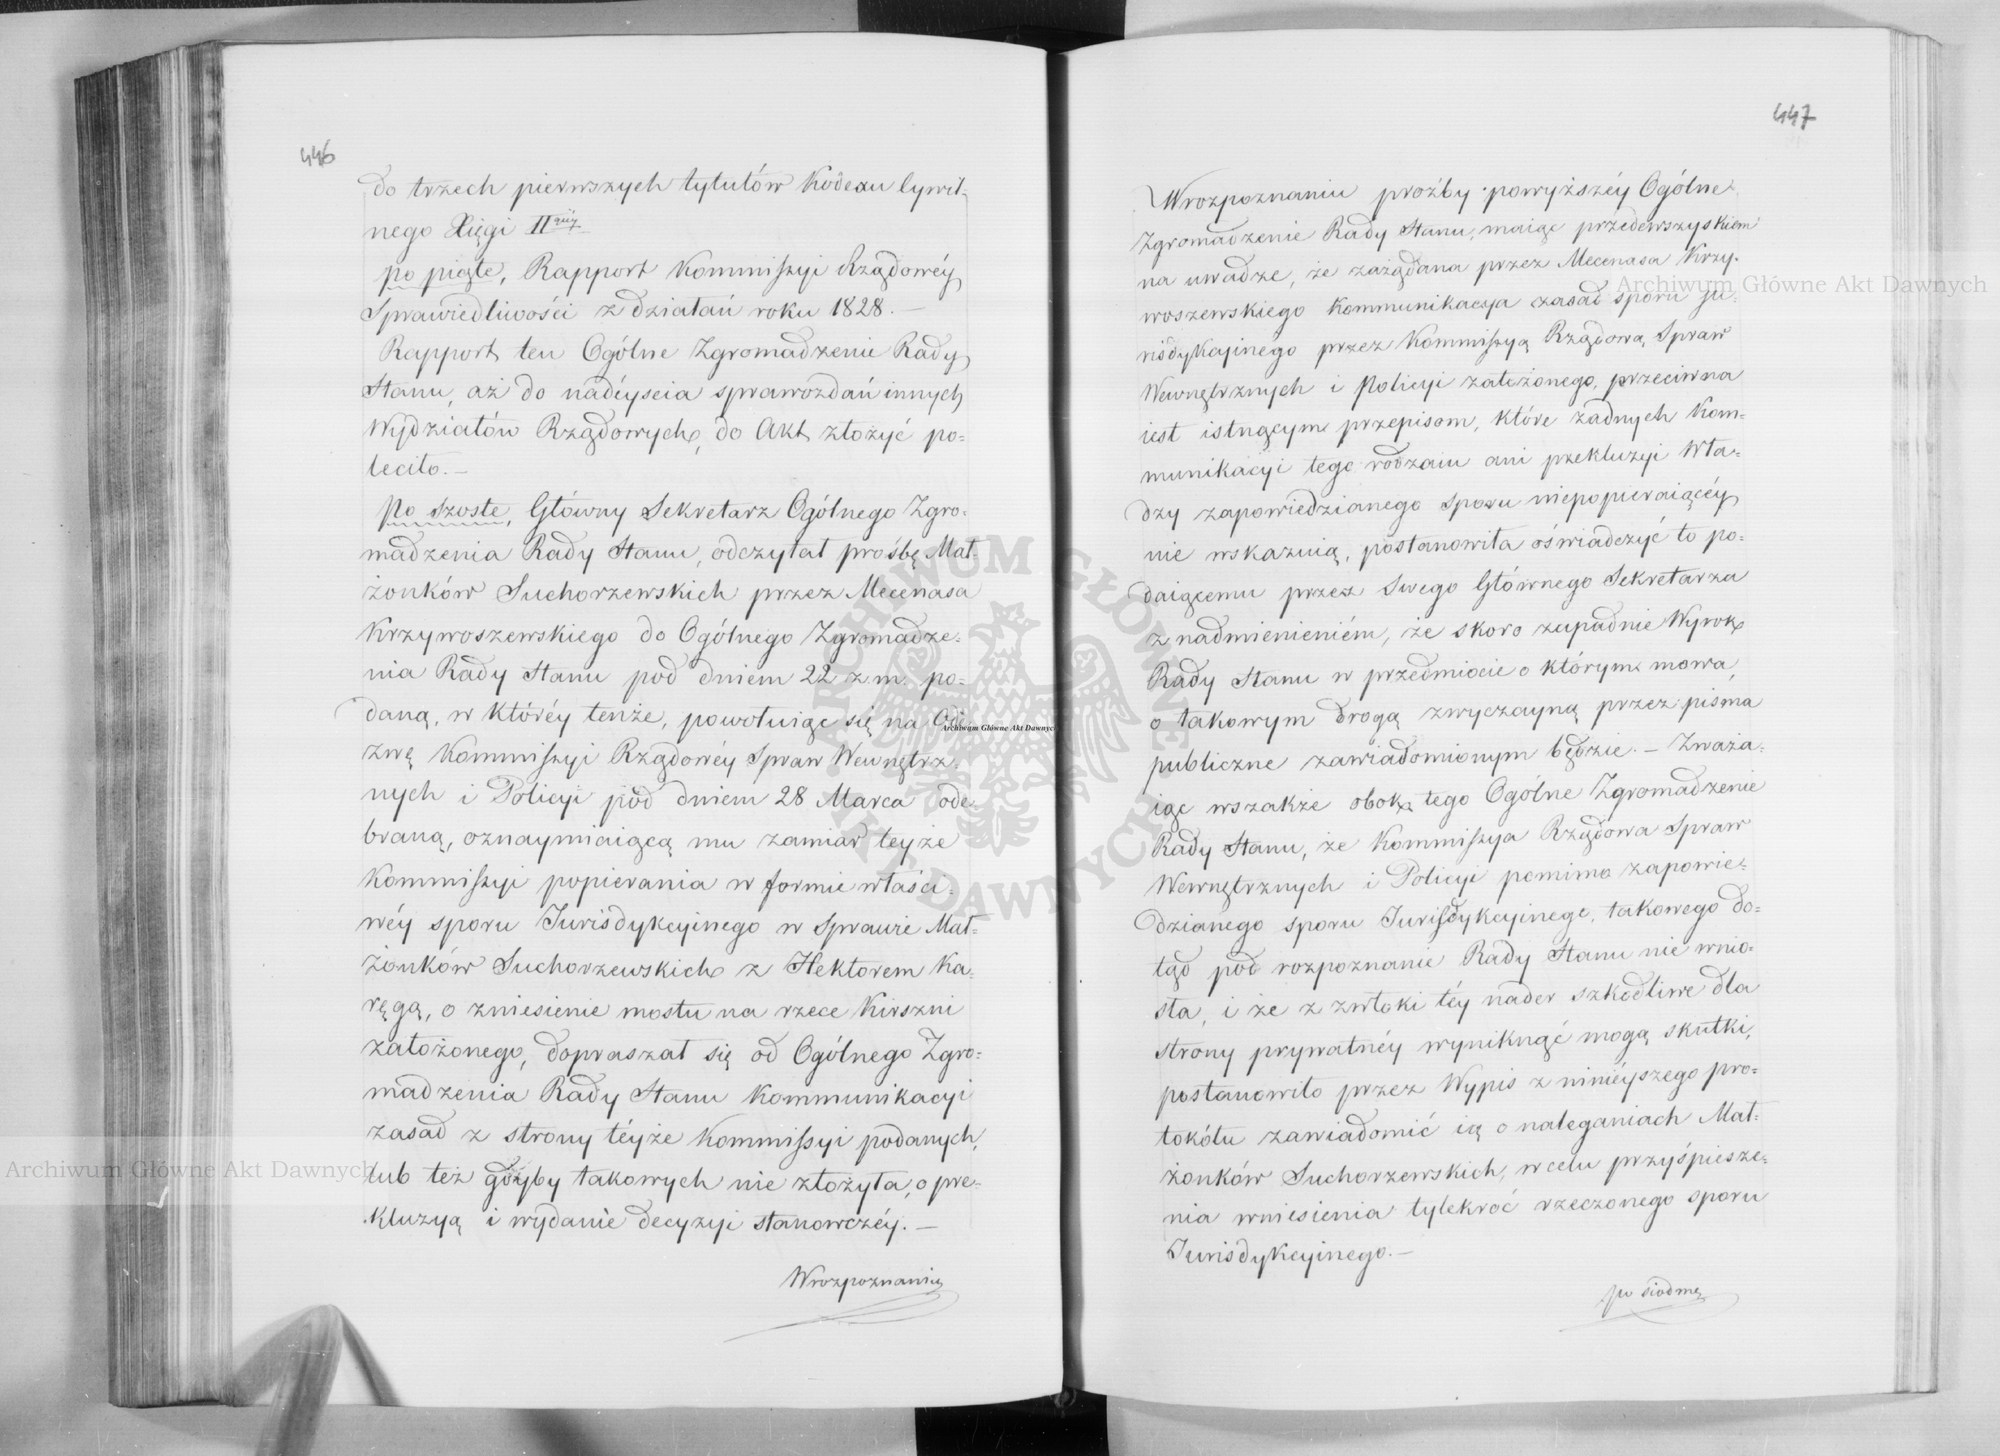 446
do trzech pierwszych tytułów Kodexu Cywil-
nego Xięgi II giéy
po piąte, Rapport Kommissyi Rządowéy
Sprawiedliwości z działań roku 1828. –
Rapport ten Ogólne Zgromadzenie Rady
Stanu, aż do nadéyscia sprawozdań innych
Wydziałów Rządowych, do Akt złożyć po-
leciło. –
Po szoste, Główny Sekretarz Ogólnego Zgro-
madzenia Rady Stanu, odczytał prośbę Mał-
żonków Suchorzewskich przez Mecenasa
Krzywoszewskiego do Ogólnego Zgromadze-
nia Rady Stanu pod dniem 22 z m. po-
daną, w któréy tenże, powołuiąc się na Ode-
zwę Kommissyi Rządowéy Spraw Wewnętrz-
nych i Policyi pod dniem 28 Marca ode-
braną, oznaymiaiącą mu zamiar teyże
Kommissyi popierania w formie właści-
wéy sporu Jurisdykcyinego w Sprawie Mał-
żonków Suchorzewskich z Hektorem Ka-
ręgą, o zniesienie mostu na rzece Kirszni
założonego, dopraszał się od Ogólnego Zgro-
madzenia Rady Stanu Kommunikacyi
zasad z strony téyże Kommissyi podanych,
lub też gdyby takowych nie złożyła, o pre-
kluzyą i wydanie decyzyi stanowczéy. –
W rozpoznaniu
447
W rozpoznaniu proźby powyższéy Ogólne
Zgromadzenie Rady Stanu, maiąc przedewszystkiem
na uwadze, że zażądana przez Mecenasa Krzy-
woszewskiego Kommunikacya zasad sporu Ju-
risdykcyinego przez Kommissyą Rządową Spraw
Wewnętrznych i Policyi założonego, przeciwna
iest istnącym przepisom, które żadnych Kom-
munikacyi tego rodzaiu ani prekluzyi Wła-
dzy zapowiedzianego sporu niepopieraiącéy
nie wskazuią, postanowiła oświadczyć to po-
daiącemu przez Swego Głównego Sekretarza
z nadmienieniém, że skoro zapadnie Wyrok
Rady Stanu w przedmiocie o którym mowa,
o takowym drogą zwyczayną przez pisma
publiczne zawiadomionym będzie. – Zważa-
iąc wszakże obok tego Ogólne Zgromadzenie
Rady Stanu, że Kommissya Rządowa Spraw
Wewnętrznych i Policyi pomimo zapowie-
dzianego sporu Jurisdykcyinego, takowego do-
tąd pod rozpoznanie Rady Stanu nie wnio-
sła, i że z zwłoki téy nader szkodliwe dla
strony prywatnéy wyniknąć mogą skutki,
postanowiło przez Wypis z ninieyszego pro-
tokółu zawiadomić ią o naleganiach Mał-
żonków Suchorzewskich, w celu przyśpiesze-
nia wniesienia tylekroć rzeczonego sporu
Jurisdykcyinego. –
po siodme
Archiwum Główne Akt Dawnych
Archiwum Główne Akt Dawnych
Archiwum Główne Akt Dawnych
ARCHIWUM GŁÓWNE AKT DAWNYCH